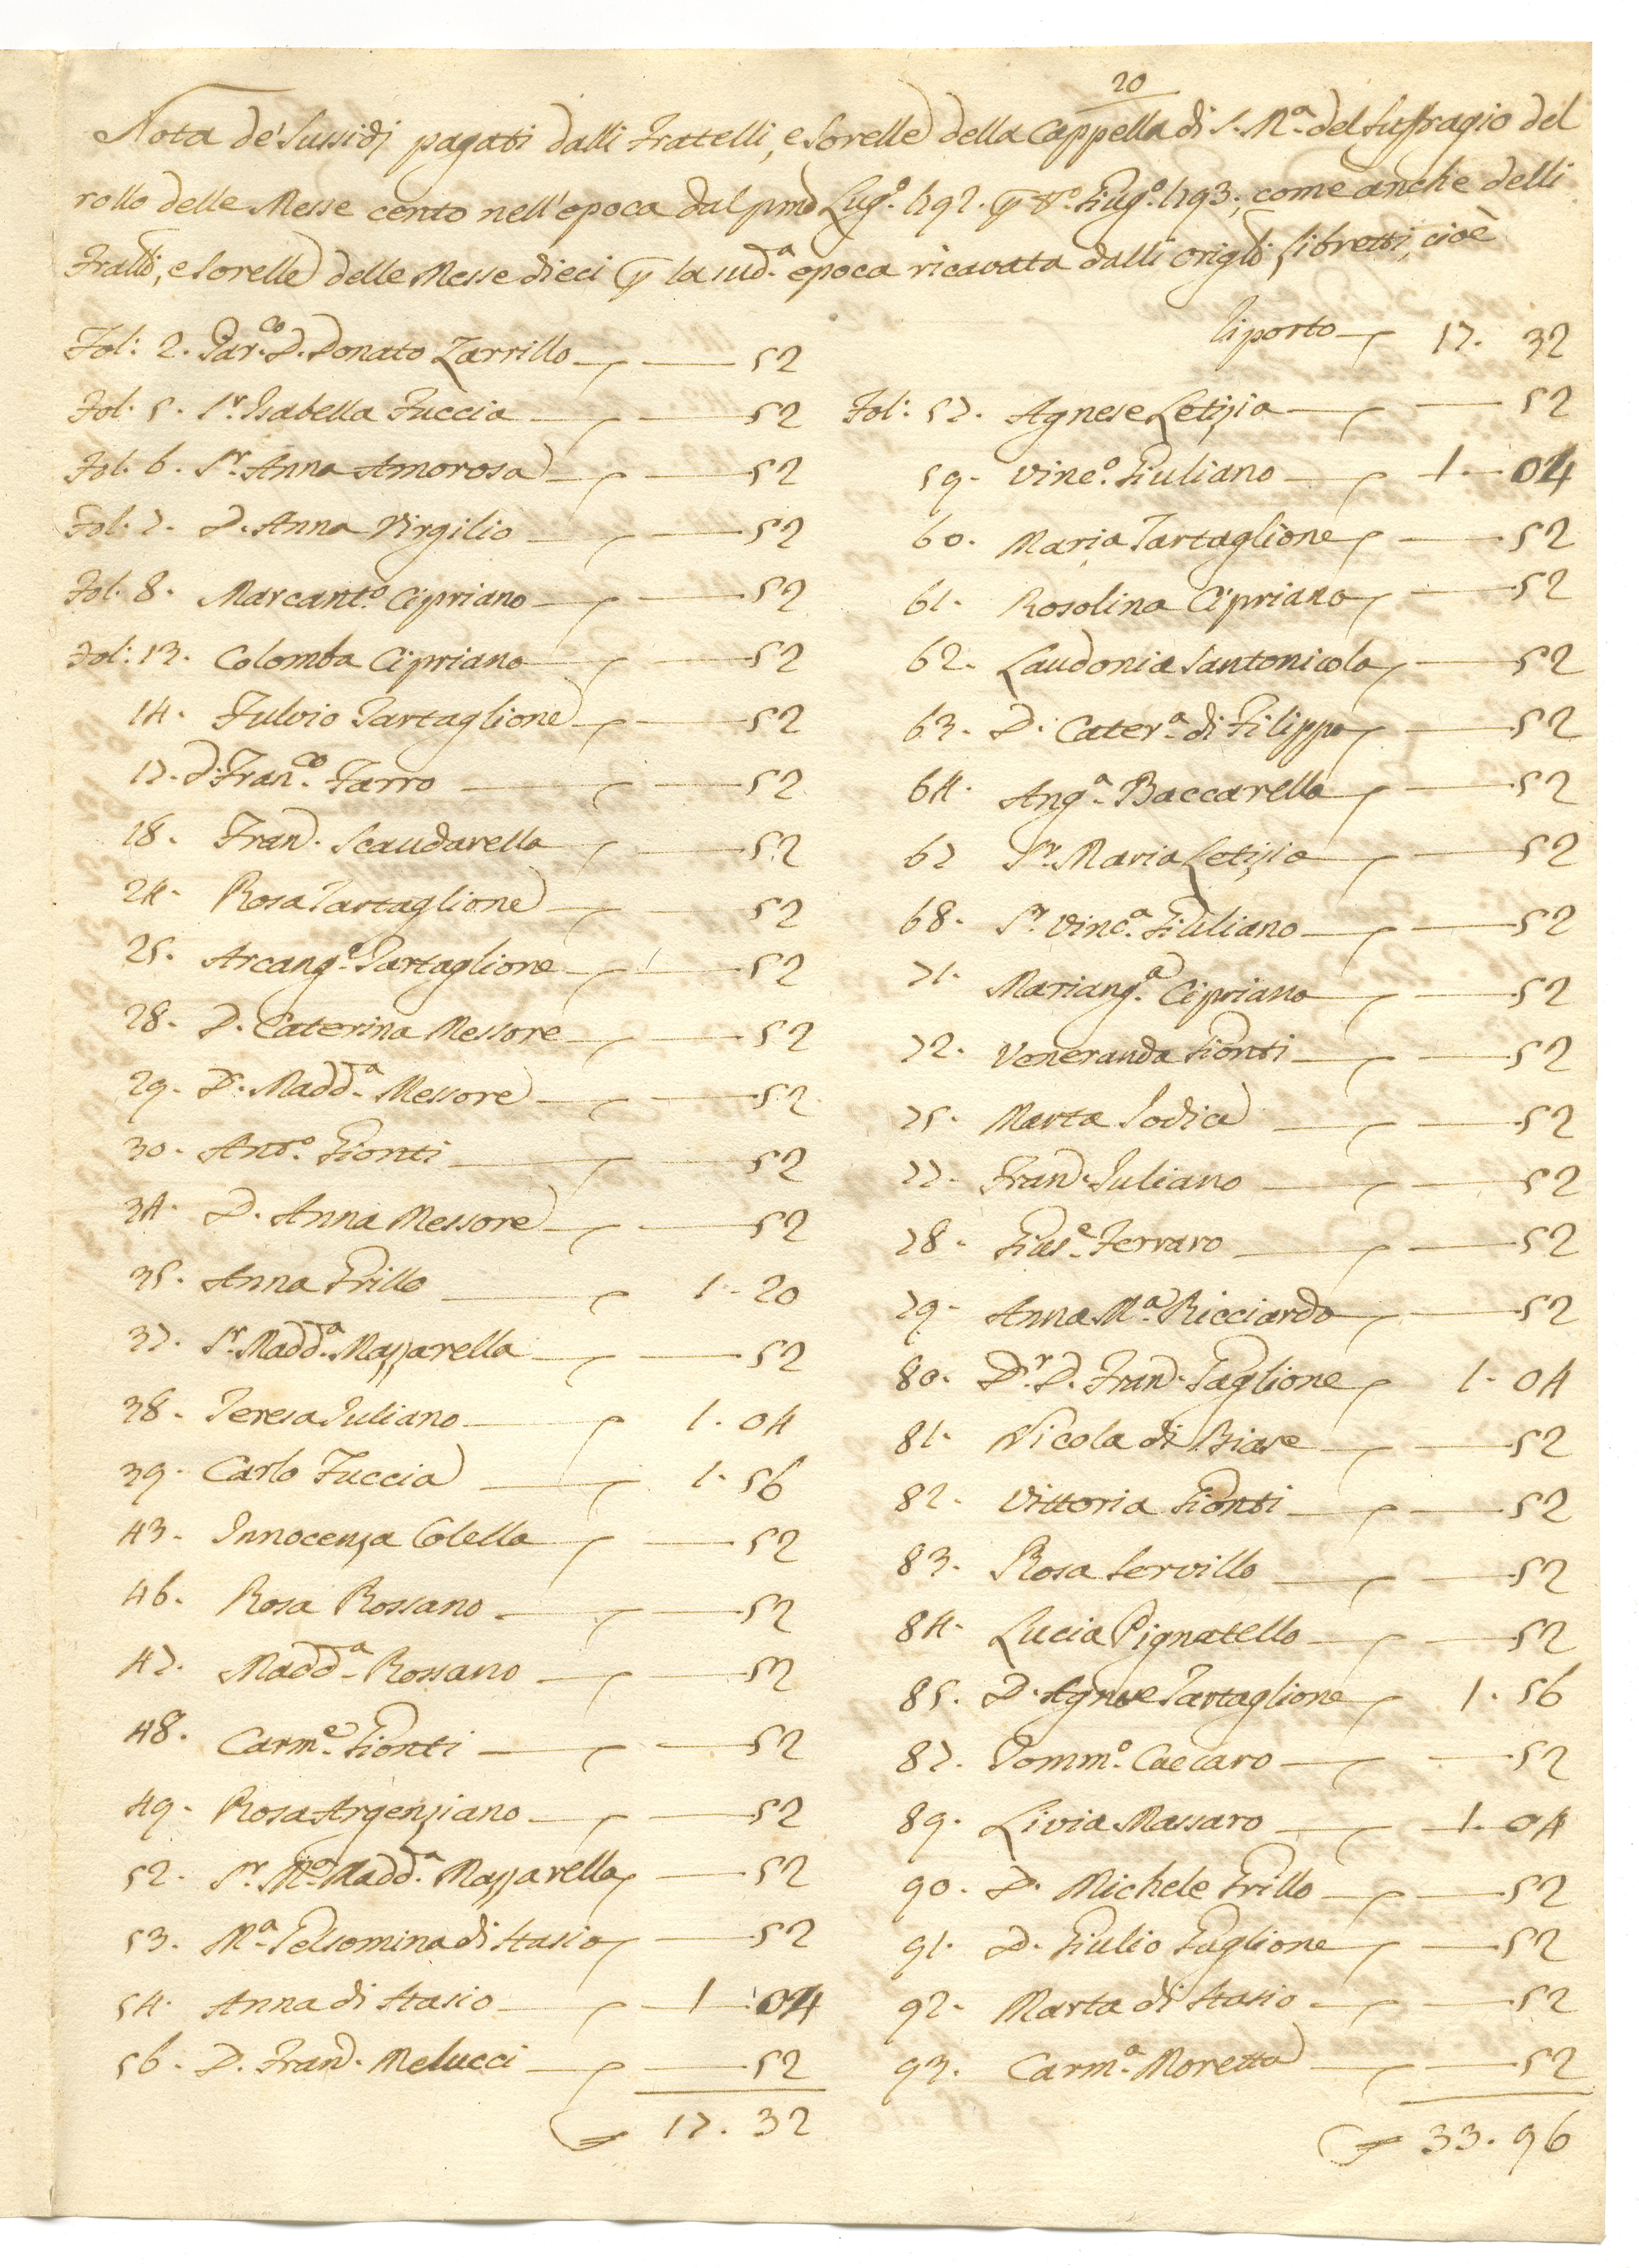 20
Nota de' Sussidj pagati dalli Fratelli, e Sorelle della Cappella di S. M.a del Suffragio del
rollo delle Messe cento nell'epoca dal pmo Lug.o 1792. p tt.o Giug.o 1793; come anche delli
Fratlli, e Sorelle delle Messe dieci p la sud.a epoca ricavata dalli origli libretti, cioè
Fol: 2. Par.co D. Donato Zarrillo — 52
Fol. 5. Sr. Isabella Fuccia — 52
Fol. 6. Sr. Anna Amorosa — 52
Fol. 7. D. Anna Virgilio — 52
Fol. 8. Marcant.o Cipriano — 52
Fol: 13. Colomba Cipriano — 52
14. Fulvio Tartaglione — 52
17. D. Fran.co Farro — 52
18. Fran. Scaudarella — 52
24. Rosa Tartaglione — 52
25. Arcang.o Tartaglione — 52
28. D. Caterina Messore — 52
29. D. Madd.a Messore — 52
30. Ant.o Gionti — 52
34. D. Anna Messore — 52
35. Anna Grillo — 1. 20
37. Sr. Madd.a Mazzarella — 52
38. Teresa Iuliano — 1. 04
39. Carlo Fuccia — 1. 56
43. Innocenza Colella — 52
46. Rosa Rossano — 52
47. Madd.a Rossano — 52
48. Carm.e Gionti — 52
49. Rosa Argenziano — 52
52. Sr. M.a Madd.a Mazzarella — 52
53. M.a Gelsomina di Stasio — 52
54. Anna di Stasio — 1. 04
56. D. Fran. Melucci — 52
17. 32
Riporto — 17. 32
Fol: 57. Agnese Letizia — 52
59. Vinc.o Giuliano — 1. 04
60. Maria Tartaglione — 52
61. Rosolina Cipriano — 52
62. Laudonia Santonicola — 52
63. D. Cater.a di Filippo — 52
64. Ang.a Baccarella — 52
67 Sr. Maria Letizia — 52
68. Sr. Vinc.a Giuliano — 52
71. Mariang.a Cipriano — 52
72. Veneranda Gionti — 52
75. Marta Iodice — 52
77. Fran. Iuliano — 52
78. Gius.e Ferraro — 52
79. Anna M.a Ricciardo — 52
80. Dr. D. Fran. Taglione — 1. 04
81. Nicola di Biase — 52
82. Vittoria Gionti — 52
83. Rosa Servillo — 52
84. Lucia Pignatello — 52
85. D. Agnese Tartaglione — 1. 56
87. Domm.o Caecaro — 52
89. Livia Massaro — 1. 04
90. D. Michele Grillo — 52
91. D. Giulio Guglione — 52
92. Marta di Stasio — 52
93. Carm.a Moretta — 52
33. 96